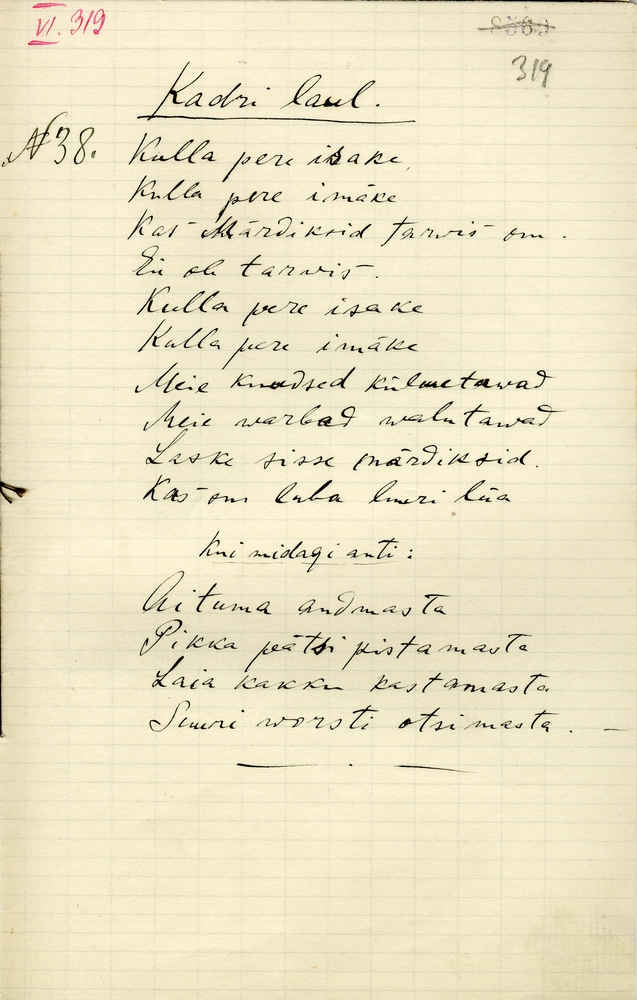 VI. 319
319
Kadri laul.
№38.
Kulla pere isake,
Kulla pere imäke
Kas Märdiksid tarwis om.
Ei ole tarwis.
Kulla pere isake
Kulla pere imäke
Meie knudsed külmetawad
Meie warbad walutawad
Laske sisse märdiksid.
Kas om luba luuri lüa
Kui midagi anti:
Aituma andmasta
Pikka pätsi pistamasta
Laia kakku kastamasta
Suuri worsti otsimasta.